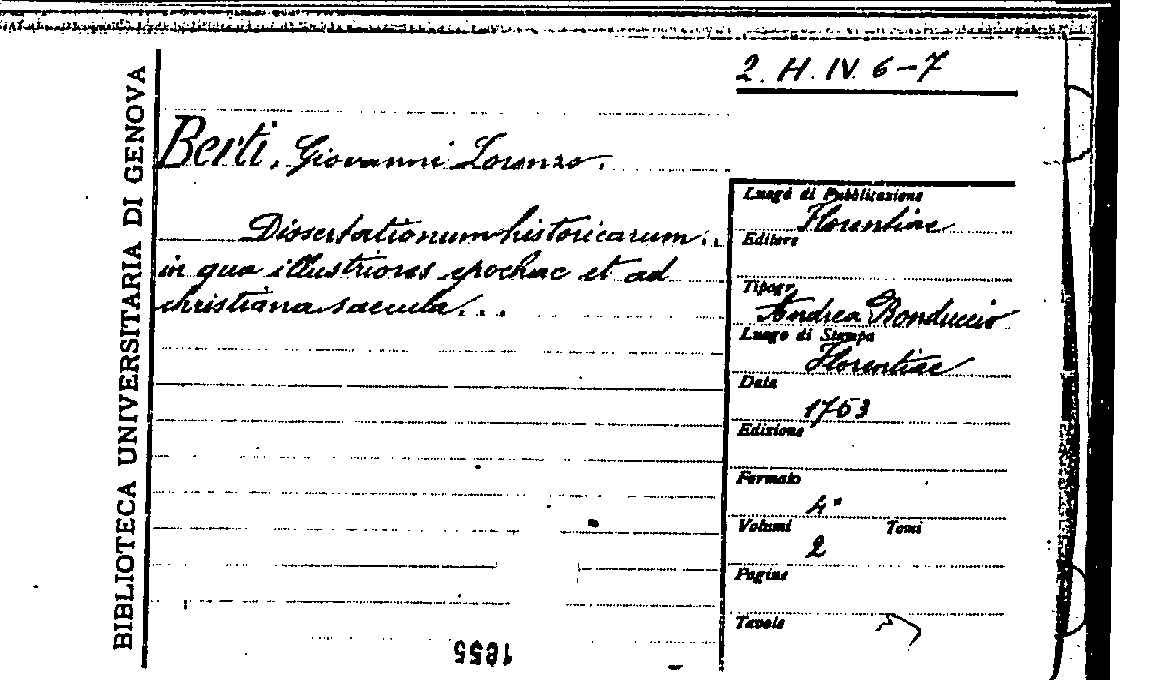 BIBLIOTECA UNIVERSITARIA DI GENOVA
2. H. IV. 6-7
Berti, Giovanni Lorenzo.
Dissertationum historicarum...
in qua illustriores epochae et ad
christiana saecula...
Luogo di Pubblicazione
Florentiae
Editore
Tipogr.
Andrea Bonduccio
Luogo di Stampa
Florentiae
Data
1753
Edizione
Formato
4°
Volumi Tomi
2
Pagine
Tavole
1855